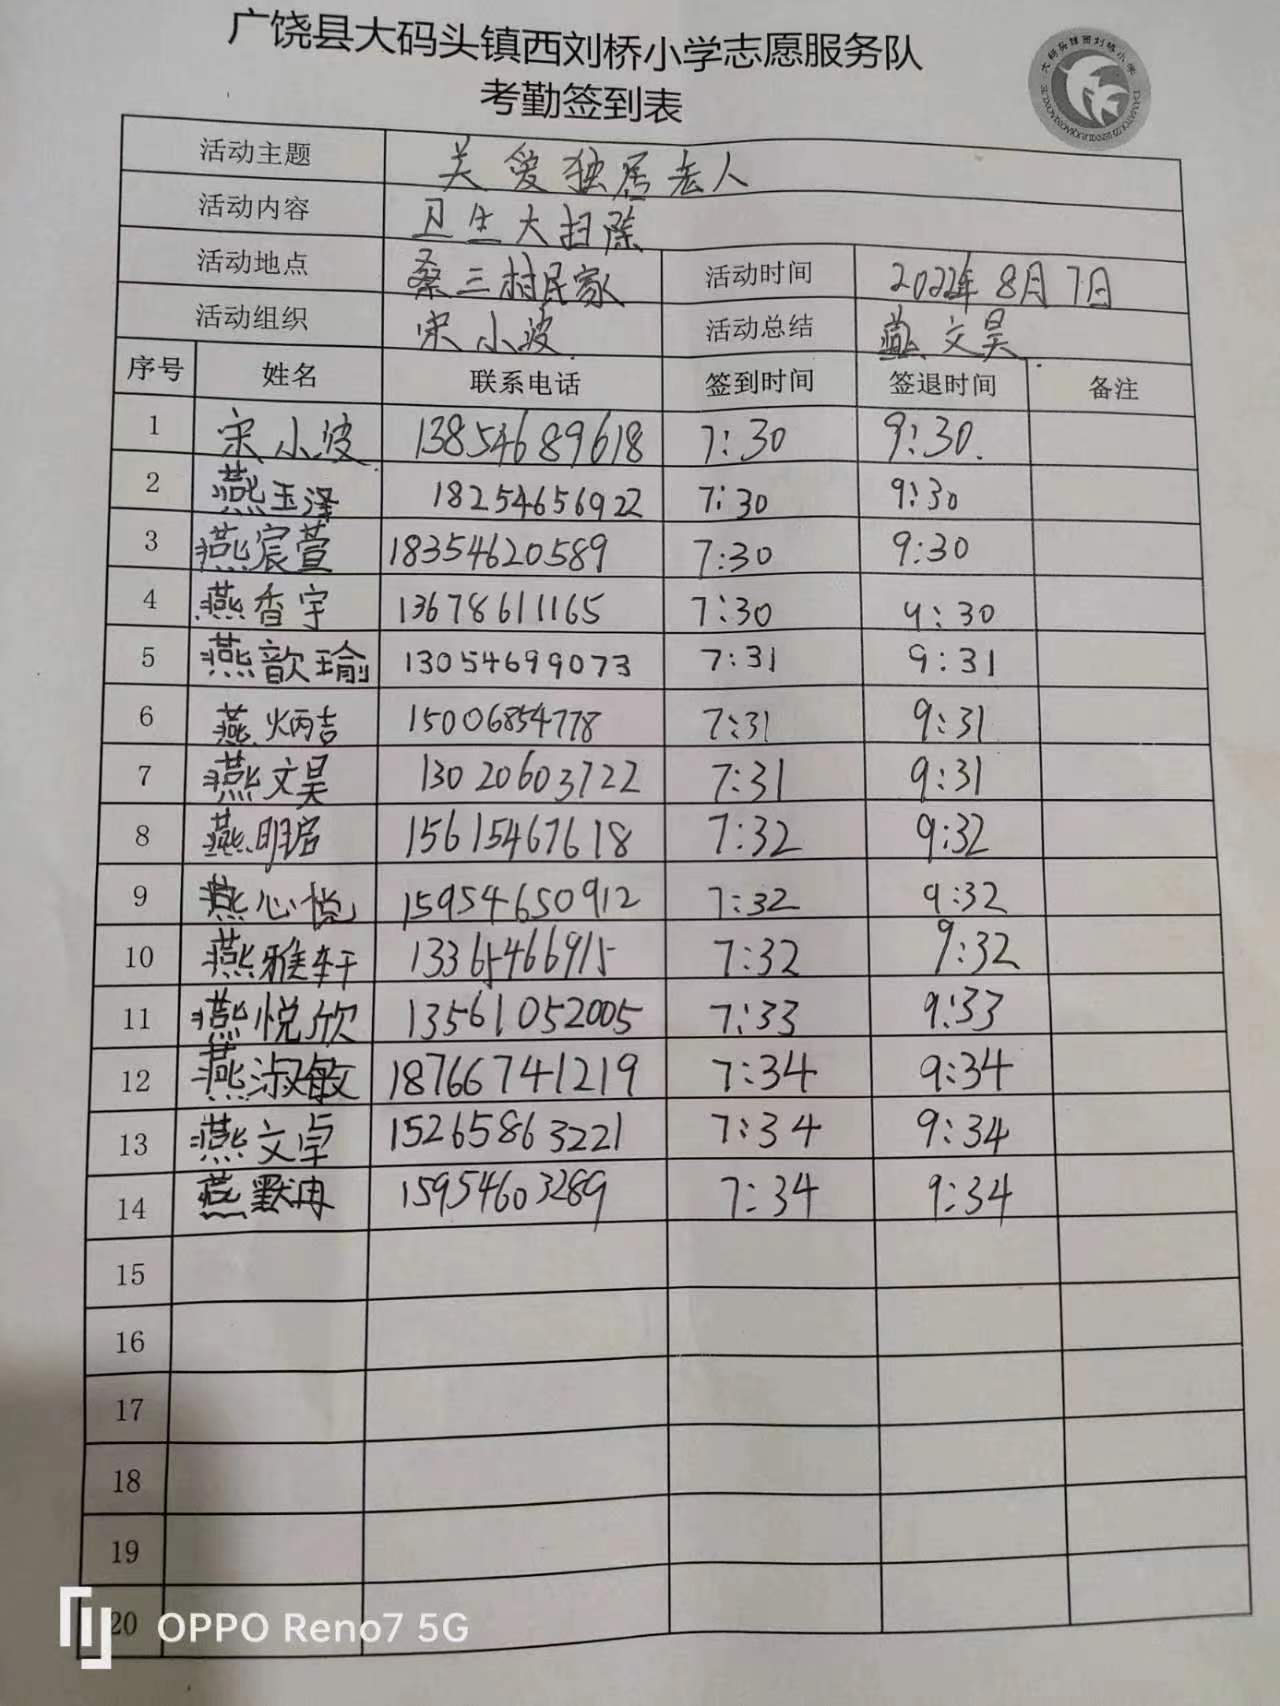 广饶县大码头镇西刘桥小学志愿服务队
考勤签到表
活动主题 关爱独居老人
活动内容 卫生大扫除
活动地点 桑三村民家 活动时间 2022年8月7日
活动组织 宋小波 活动总结 燕文昊
序号 姓名 联系电话 签到时间 签退时间 备注
1 宋小波 13854689618 7:30 9:30
2 燕玉泽 18254656922 7:30 9:30
3 燕宸萱 18354620589 7:30 9:30
4 燕香宇 13678611165 7:30 9:30
5 燕歆瑜 13054699073 7:31 9:31
6 燕炳吉 15006854778 7:31 9:31
7 燕文昊 13020603722 7:31 9:31
8 燕明启 15615467618 7:32 9:32
9 燕心悦 15954650912 7:32 9:32
10 燕雅轩 13365466915 7:32 9:32
11 燕悦欣 13561052005 7:33 9:33
12 燕淑敏 18766741219 7:34 9:34
13 燕文卓 15265863221 7:34 9:34
14 燕默冉 15954603289 7:34 9:34
15
16
17
18
19
20
OPPO Reno7 5G